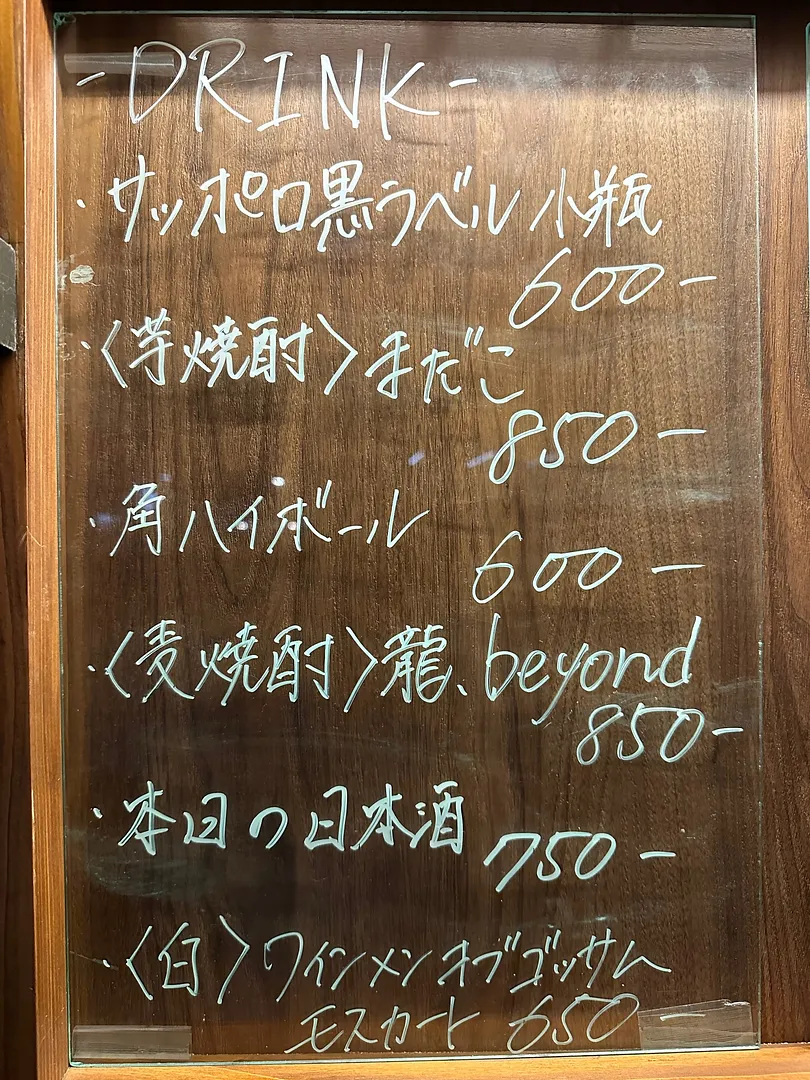 -DRINK-
・サッポロ黒ラベル 小瓶
600-
・〈芋焼酎〉まだこ
850-
・角ハイボール
600-
・〈麦焼酎〉龍、beyond
850-
・本日の日本酒
750-
・〈白〉ワインメンオブゴッサム
モスカート 650-